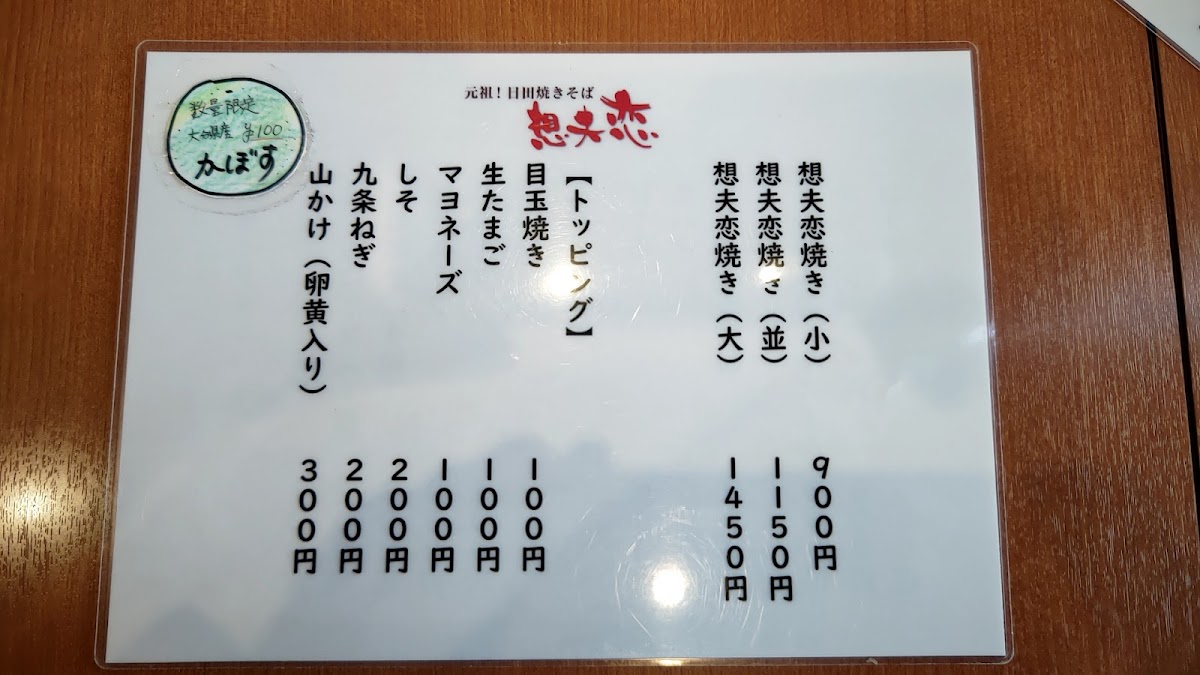 元祖!日田焼きそば
想夫恋
想夫恋焼き(小) 900円
想夫恋焼き(並) 1150円
想夫恋焼き(大) 1450円
【トッピング】
目玉焼き 100円
生たまご 100円
マヨネーズ 100円
しそ 200円
九条ねぎ 200円
山かけ(卵黄入り) 300円
数量限定
大分県産 ¥100
かぼす